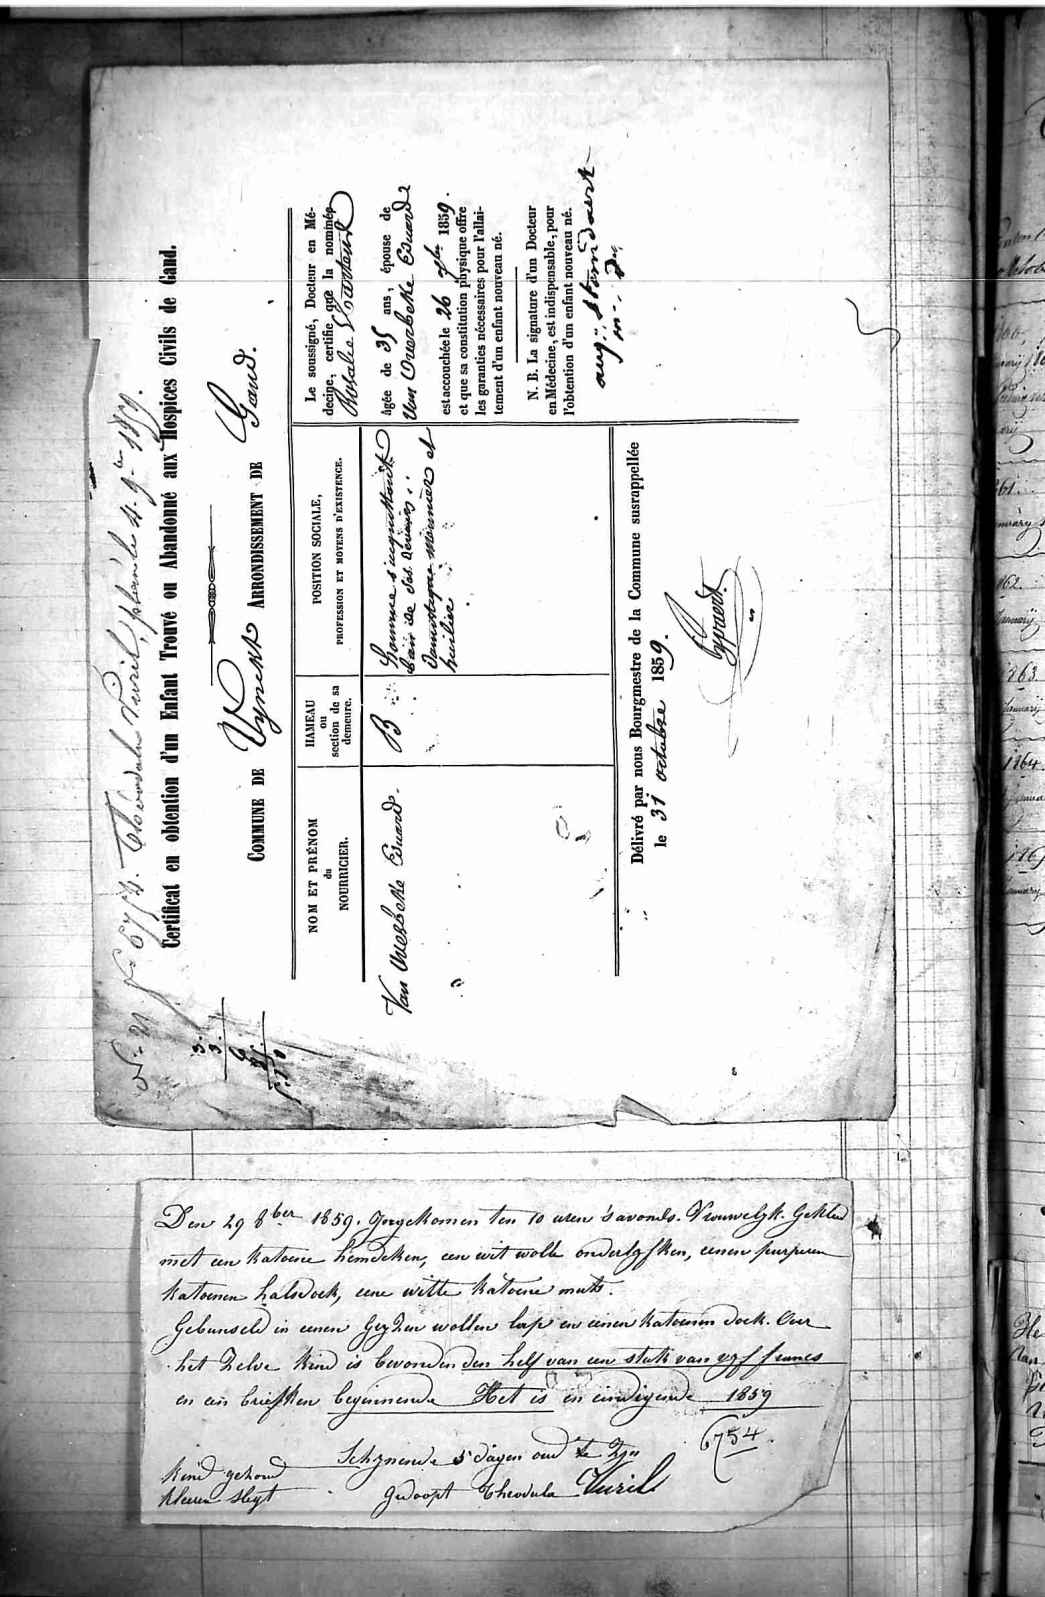 N° 21 N° 6754. Theodula Vuril, placée le 4. 9bre 1859.
Certificat en obtention d'un Enfant Trouvé ou Abandonné aux Hospices Civils de Gand.
COMMUNE DE Vynckt ARRONDISSEMENT DE Gand.
NOM ET PRÉNOM
du
NOURRICIER.
HAMEAU
ou
section de sa
demeure.
POSITION SOCIALE,
PROFESSION ET MOYENS D'EXISTENCE.
Van Overbeke Eduard.
B
homme s'acquittant
bien de ses devoirs.
domestique meunier et
huilier
Le soussigné, Docteur en Mé-
decine, certifie que la nommée
Rosalie
âgée de 35 ans, épouse de
Van Overbeke Eduard
est accouchée le 26 1859.
et que sa constitution physique offre
les garanties nécessaires pour l'allai-
tement d'un enfant nouveau né.
N. B. La signature d'un Docteur
en Médecine, est indispensable, pour
l'obtention d'un enfant nouveau né.
aug: Standaert
Délivré par nous Bourgmestre de la Commune susrappellée
le 31 octobre 1859.
Den 29 8ber 1859. Ingekomen ten 10 uren 's avonds. Vrouwelyk. Gekleed
met een katoene hemdeken, een wit wolle onderlyfken, eenen purpuren
katoenen halsdoek, eene witte katoene muts.
Gebunseld in eenen gryzen wollen lap en eenen katoenen doek. Over
het zelve kind is bevonden den helf van een stuk van vyf francs
en een briefken beginnende Het is en eindigende 1859
6754.
Schynende 5 dagen oud te zyn
kind gezond
kleeren slegt
Gedoopt Theodula Vuril